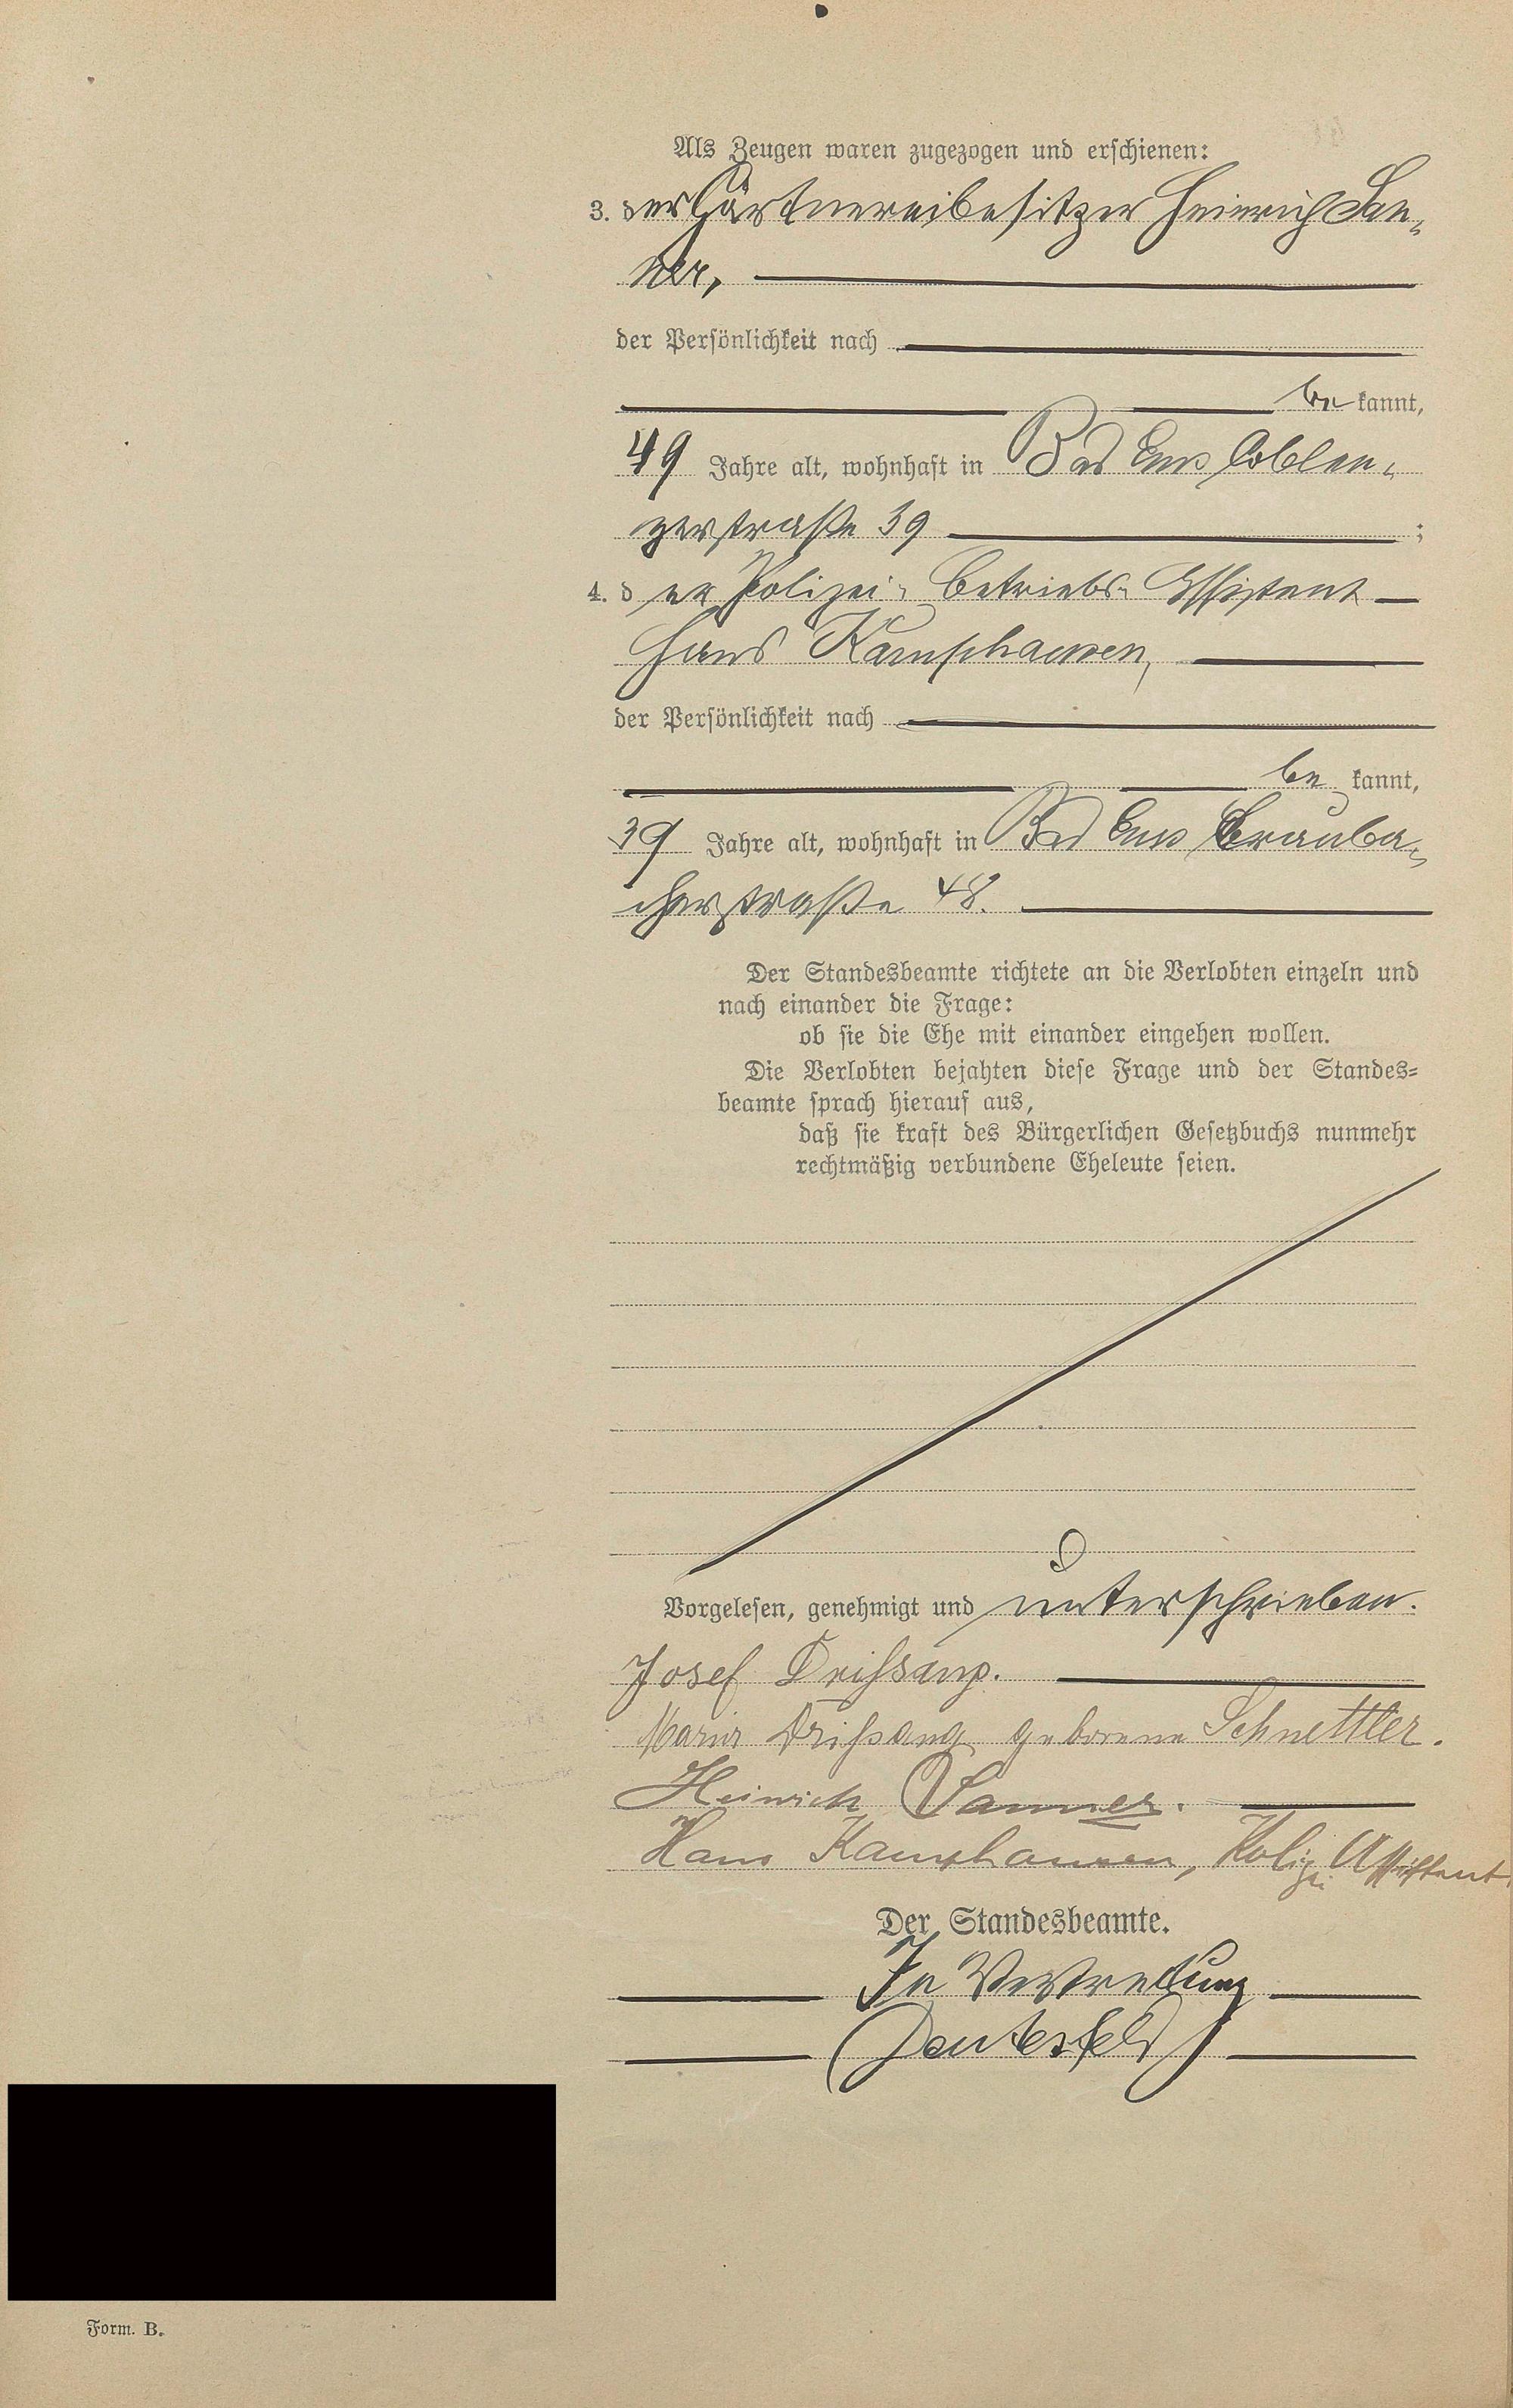 Als Zeugen waren zugezogen und erschienen:
3. der Gärtnereibesitzer Heinrich San-
ner,
der Persönlichkeit nach
be kannt,
49 Jahre alt, wohnhaft in Bad Ems Coblen-
zerstraße 39 ;
4. d er Polizei- Betriebs- Assistent
Hans Kamphausen,
der Persönlichkeit nach
be kannt,
39 Jahre alt, wohnhaft in Bad Ems Brauba-
cherstraße 48.
Der Standesbeamte richtete an die Verlobten einzeln und
nach einander die Frage:
ob sie die Ehe mit einander eingehen wollen.
Die Verlobten bejahten diese Frage und der Standes-
beamte sprach hierauf aus,
daß sie kraft des Bürgerlichen Gesetzbuchs nunmehr
rechtmäßig verbundene Eheleute seien.
Vorgelesen, genehmigt und unterschrieben.
Josef Drißang.
Maria Drißang geborene Schnettler.
Heinrich Sanner.
Hans Kamphausen, Polizei Assistent
Der Standesbeamte.
In Vertretung
Form. B.